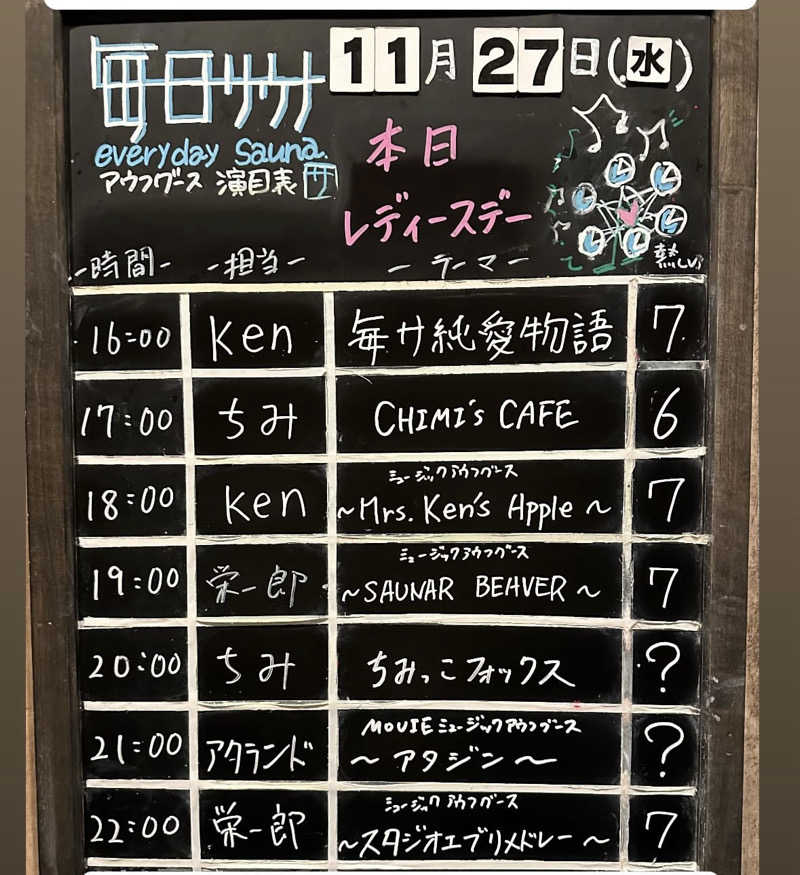 毎日サウナ
11月27日(水)
everyday sauna.
アウフグース 演目表
本日
レディースデー
-時間- -担当- -テーマ- 熱Lv.
16:00 Ken 毎サ純愛物語 7
17:00 ちみ CHIMI's CAFE 6
ミュージックアウフグース
18:00 Ken ~Mrs. Ken's Apple~ 7
ミュージックアウフグース
19:00 栄一郎 ~SAUNAR BEAVER~ 7
20:00 ちみ ちみっこフォックス ?
MOVIEミュージックアウフグース
21:00 アクランド ~アタジン~ ?
ミュージックアウフグース
22:00 栄一郎 ~スタジオエブリメドレー~ 7